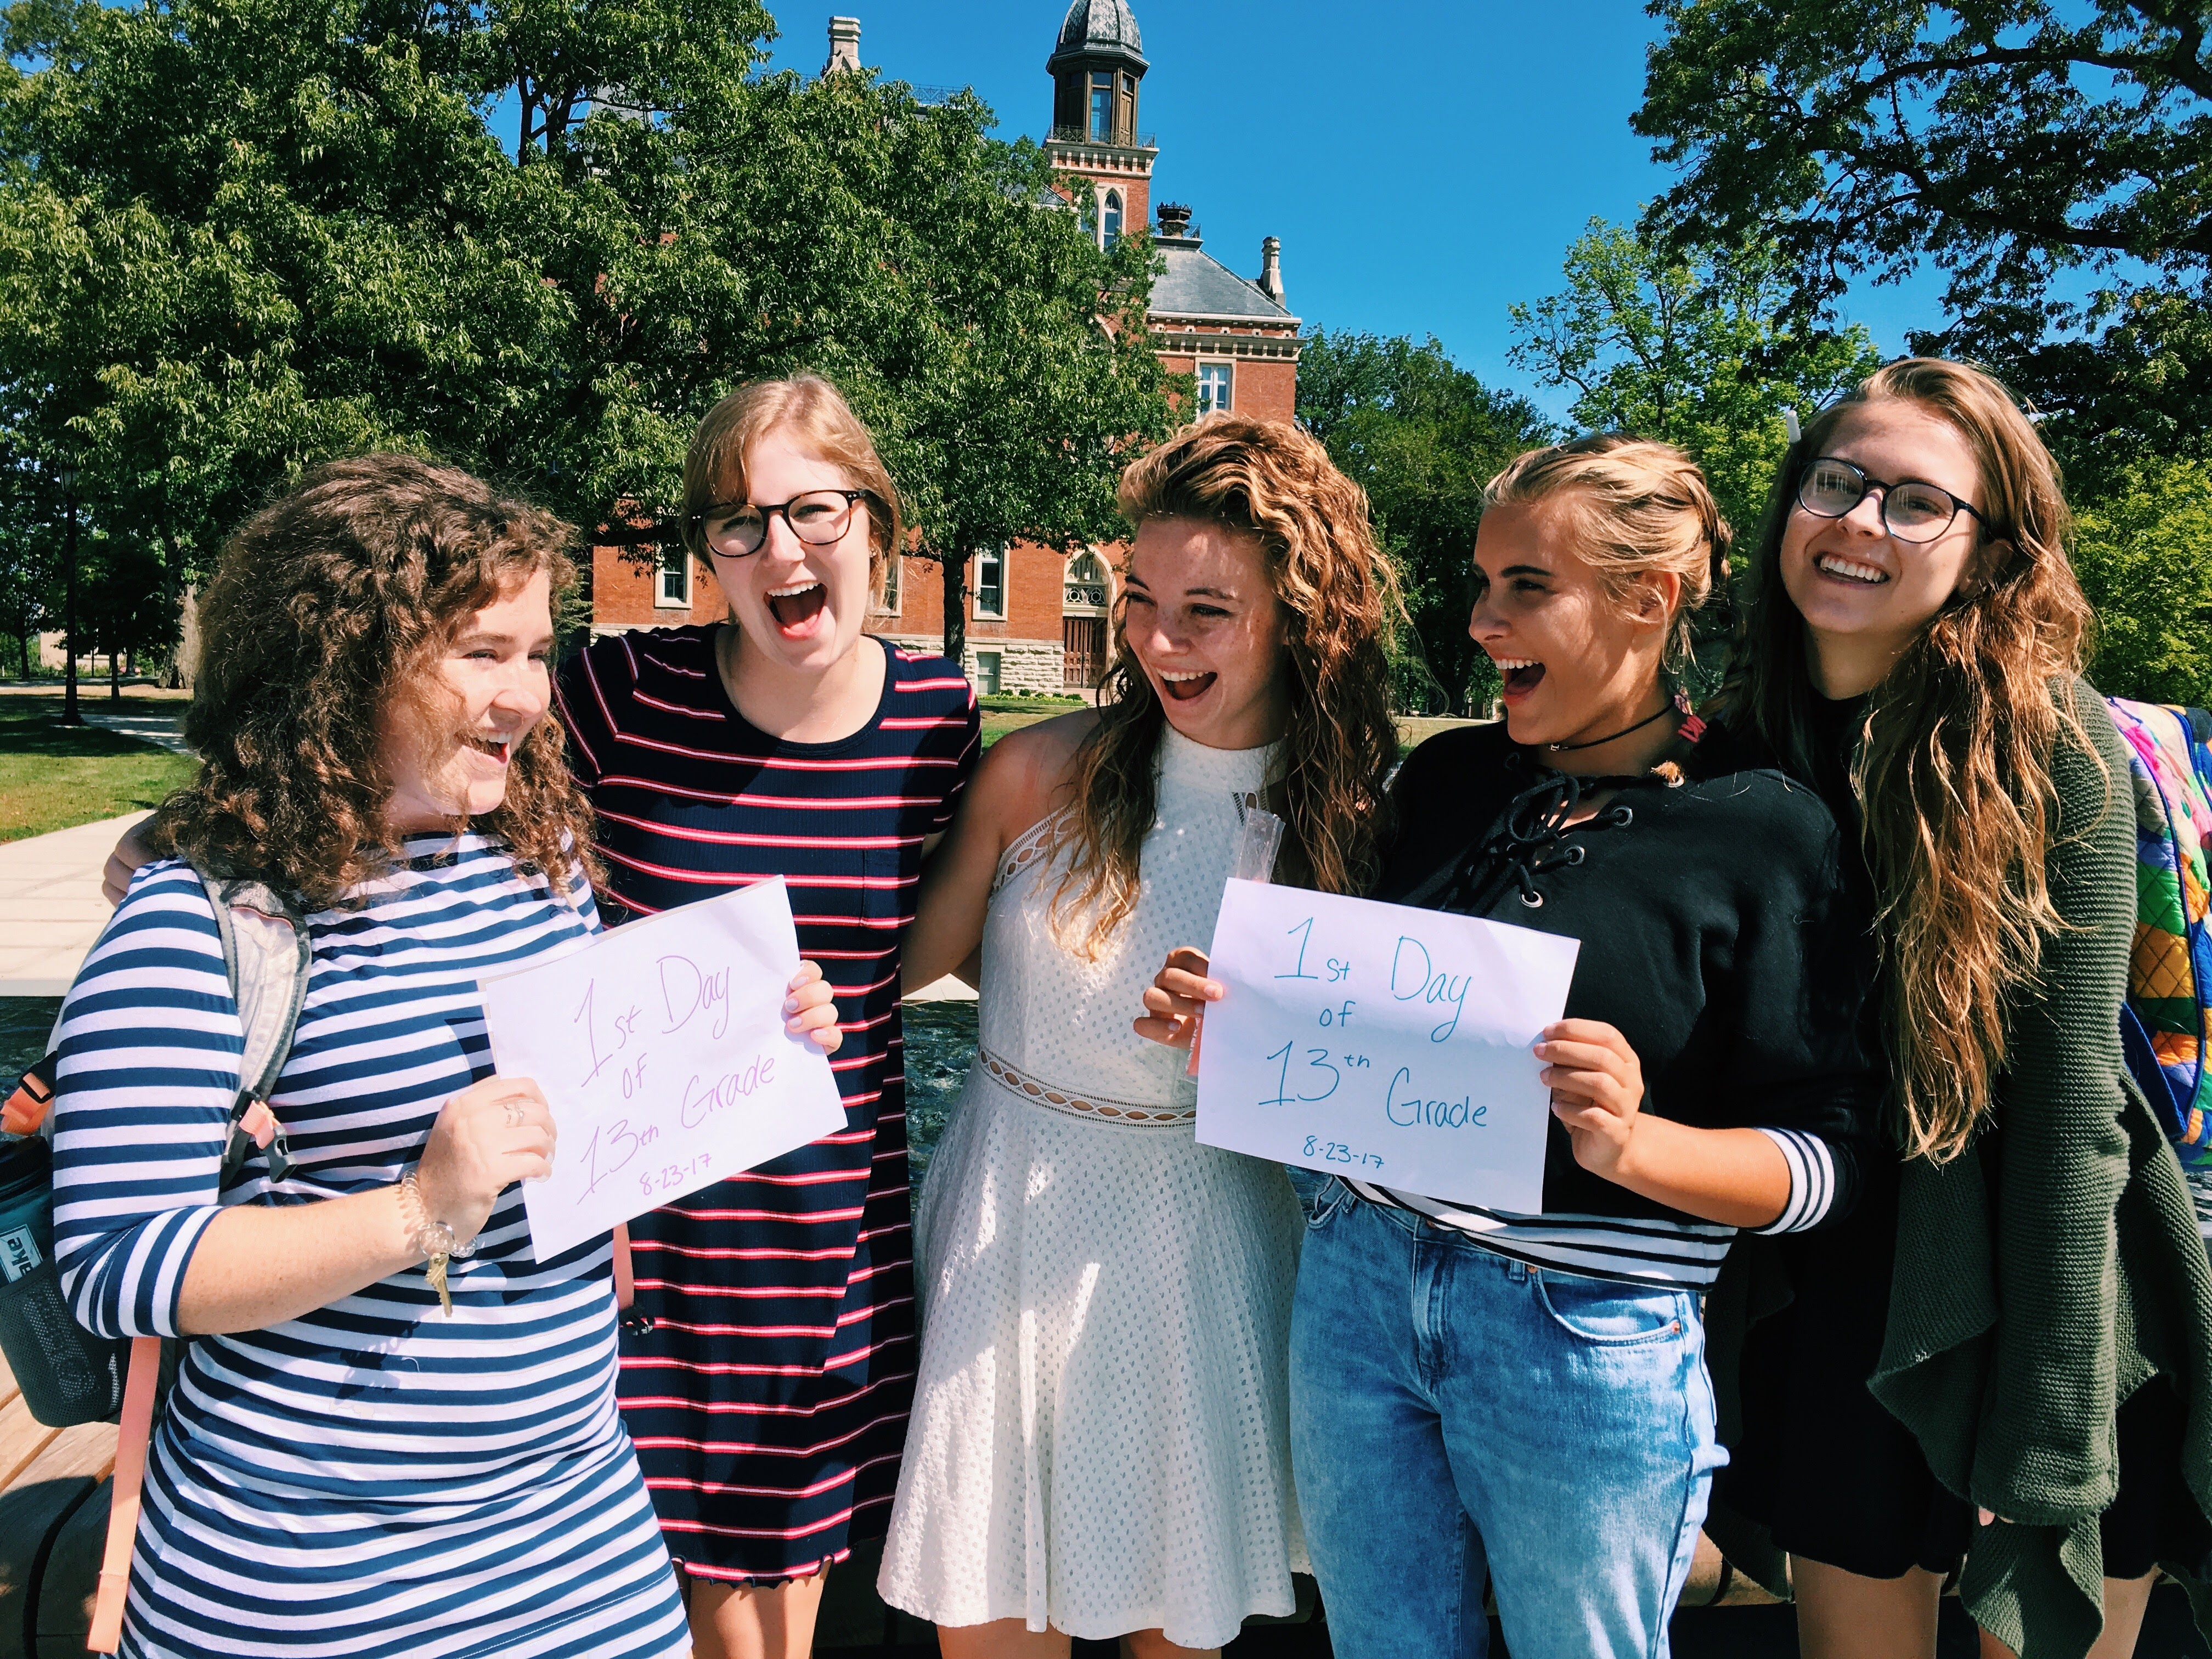 1st Day
of
13th Grade
8-23-17
1st Day
of
13th Grade
8-23-17